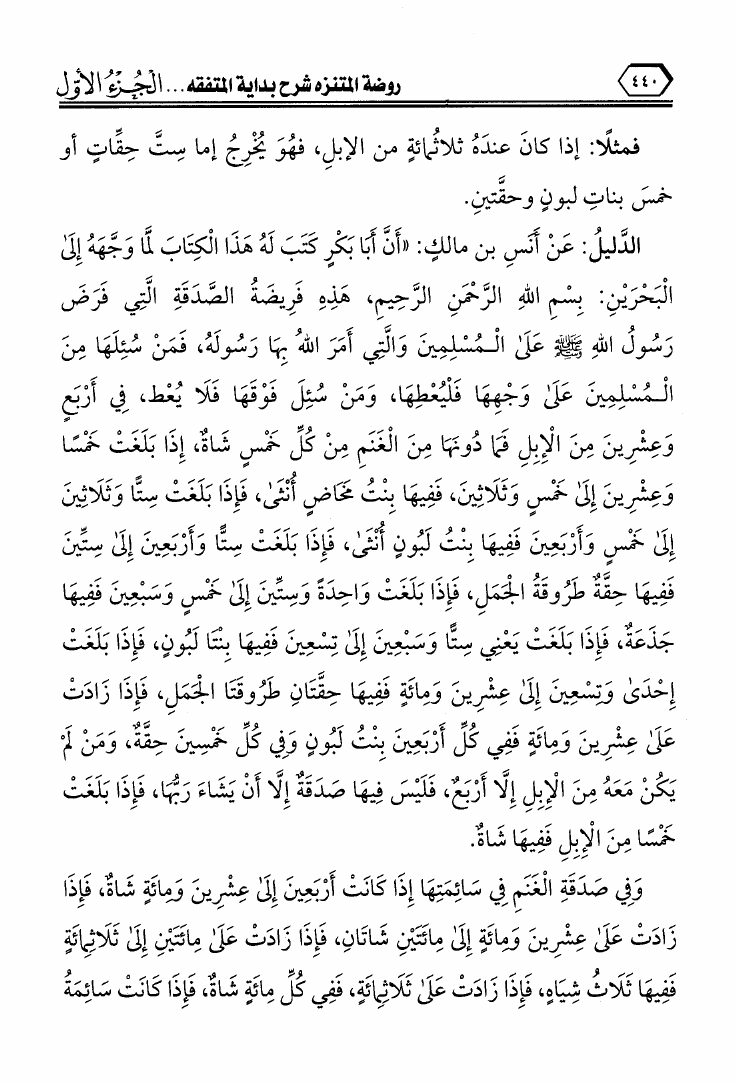 ٤٤٠ روضة المتنزه شرح بداية المتفقه... الْجُزْءُ الأَوَّل
فمثلًا: إذا كانَ عندَهُ ثلاثُمائةٍ من الإبلِ، فهُوَ يُخْرِجُ إما سِتَّ حِقَّاتٍ أو
خمسَ بناتِ لبونٍ وحقَّتينِ.
الدَّليلُ: عَنْ أَنَسِ بن مالكٍ: «أَنَّ أَبَا بَكْرٍ كَتَبَ لَهُ هَذَا الْكِتَابَ لَمَّا وَجَّهَهُ إِلَىٰ
الْبَحْرَيْنِ: بِسْمِ اللهِ الرَّحْمَنِ الرَّحِيمِ، هَذِهِ فَرِيضَةُ الصَّدَقَةِ الَّتِي فَرَضَ
رَسُولُ اللهِ ﷺ عَلَىٰ الْـمُسْلِمِينَ وَالَّتِي أَمَرَ اللهُ بِهَا رَسُولَهُ، فَمَنْ سُئِلَهَا مِنَ
الْـمُسْلِمِينَ عَلَىٰ وَجْهِهَا فَلْيُعْطِهَا، وَمَنْ سُئِلَ فَوْقَهَا فَلَا يُعْطِ، فِي أَرْبَعٍ
وَعِشْرِينَ مِنَ الْإِبِلِ فَمَا دُونَهَا مِنَ الْغَنَمِ مِنْ كُلِّ خَمْسٍ شَاةٌ، إِذَا بَلَغَتْ خَمْسًا
وَعِشْرِينَ إِلَىٰ خَمْسٍ وَثَلَاثِينَ، فَفِيهَا بِنْتُ مَخَاضٍ أُنْثَىٰ، فَإِذَا بَلَغَتْ سِتًّا وَثَلَاثِينَ
إِلَىٰ خَمْسٍ وَأَرْبَعِينَ فَفِيهَا بِنْتُ لَبُونٍ أُنْثَىٰ، فَإِذَا بَلَغَتْ سِتًّا وَأَرْبَعِينَ إِلَىٰ سِتِّينَ
فَفِيهَا حِقَّةٌ طَرُوقَةُ الْجَمَلِ، فَإِذَا بَلَغَتْ وَاحِدَةً وَسِتِّينَ إِلَىٰ خَمْسٍ وَسَبْعِينَ فَفِيهَا
جَذَعَةٌ، فَإِذَا بَلَغَتْ يَعْنِي سِتًّا وَسَبْعِينَ إِلَىٰ تِسْعِينَ فَفِيهَا بِنْتَا لَبُونٍ، فَإِذَا بَلَغَتْ
إِحْدَىٰ وَتِسْعِينَ إِلَىٰ عِشْرِينَ وَمِائَةٍ فَفِيهَا حِقَّتَانِ طَرُوقَتَا الْجَمَلِ، فَإِذَا زَادَتْ
عَلَىٰ عِشْرِينَ وَمِائَةٍ فَفِي كُلِّ أَرْبَعِينَ بِنْتُ لَبُونٍ وَفِي كُلِّ خَمْسِينَ حِقَّةٌ، وَمَنْ لَمْ
يَكُنْ مَعَهُ مِنَ الْإِبِلِ إِلَّا أَرْبَعٌ، فَلَيْسَ فِيهَا صَدَقَةٌ إِلَّا أَنْ يَشَاءَ رَبُّهَا، فَإِذَا بَلَغَتْ
خَمْسًا مِنَ الْإِبِلِ فَفِيهَا شَاةٌ.
وَفِي صَدَقَةِ الْغَنَمِ فِي سَائِمَتِهَا إِذَا كَانَتْ أَرْبَعِينَ إِلَىٰ عِشْرِينَ وَمِائَةٍ شَاةٌ، فَإِذَا
زَادَتْ عَلَىٰ عِشْرِينَ وَمِائَةٍ إِلَىٰ مِائَتَيْنِ شَاتَانِ، فَإِذَا زَادَتْ عَلَىٰ مِائَتَيْنِ إِلَىٰ ثَلَاثِمِائَةٍ
فَفِيهَا ثَلَاثُ شِيَاهٍ، فَإِذَا زَادَتْ عَلَىٰ ثَلَاثِمِائَةٍ، فَفِي كُلِّ مِائَةٍ شَاةٌ، فَإِذَا كَانَتْ سَائِمَةُ